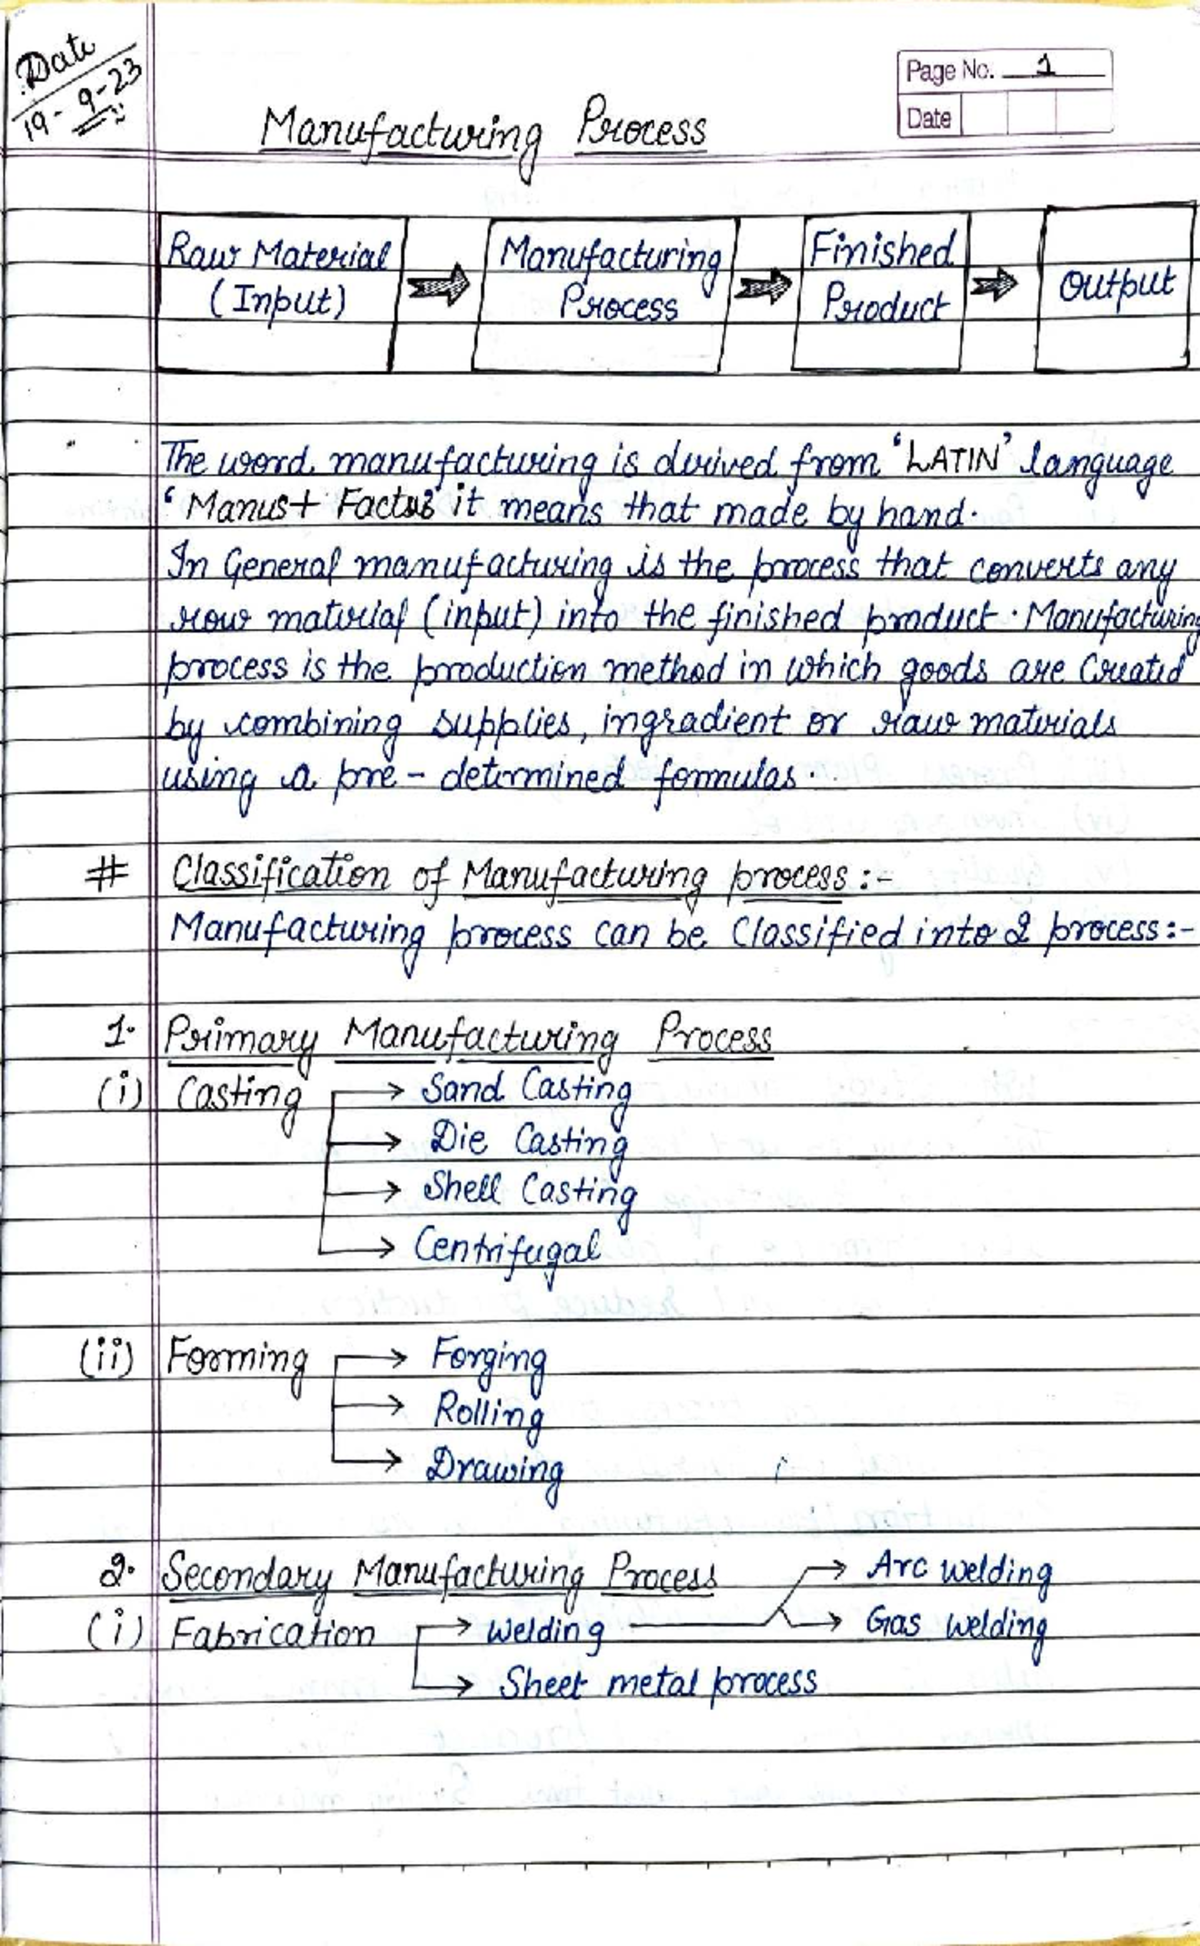 Date
19-9-23
Page No. 1
Date
Manufacturing Process
Raw Material
(Input)
Manufacturing
Process
Finished
Product
Output
The word manufacturing is derived from 'LATIN' language
'Manus+ Factus' it means that made by hand.
In General manufacturing is the process that converts any
row material (input) into the finished product. Manufacturing
process is the production method in which goods are Created
by combining supplies, ingradient or raw materials
using a pre-determined formulas.
# Classification of Manufacturing process:-
Manufacturing process can be Classified into 2 process:-
1. Primary Manufacturing Process
(i) Casting → Sand Casting
→ Die Casting
→ Shell Casting
→ Centrifugal
(ii) Forming → Forging
→ Rolling
→ Drawing
2. Secondary Manufacturing Process → Arc welding
(i) Fabrication → Welding → Gas welding
→ Sheet metal process